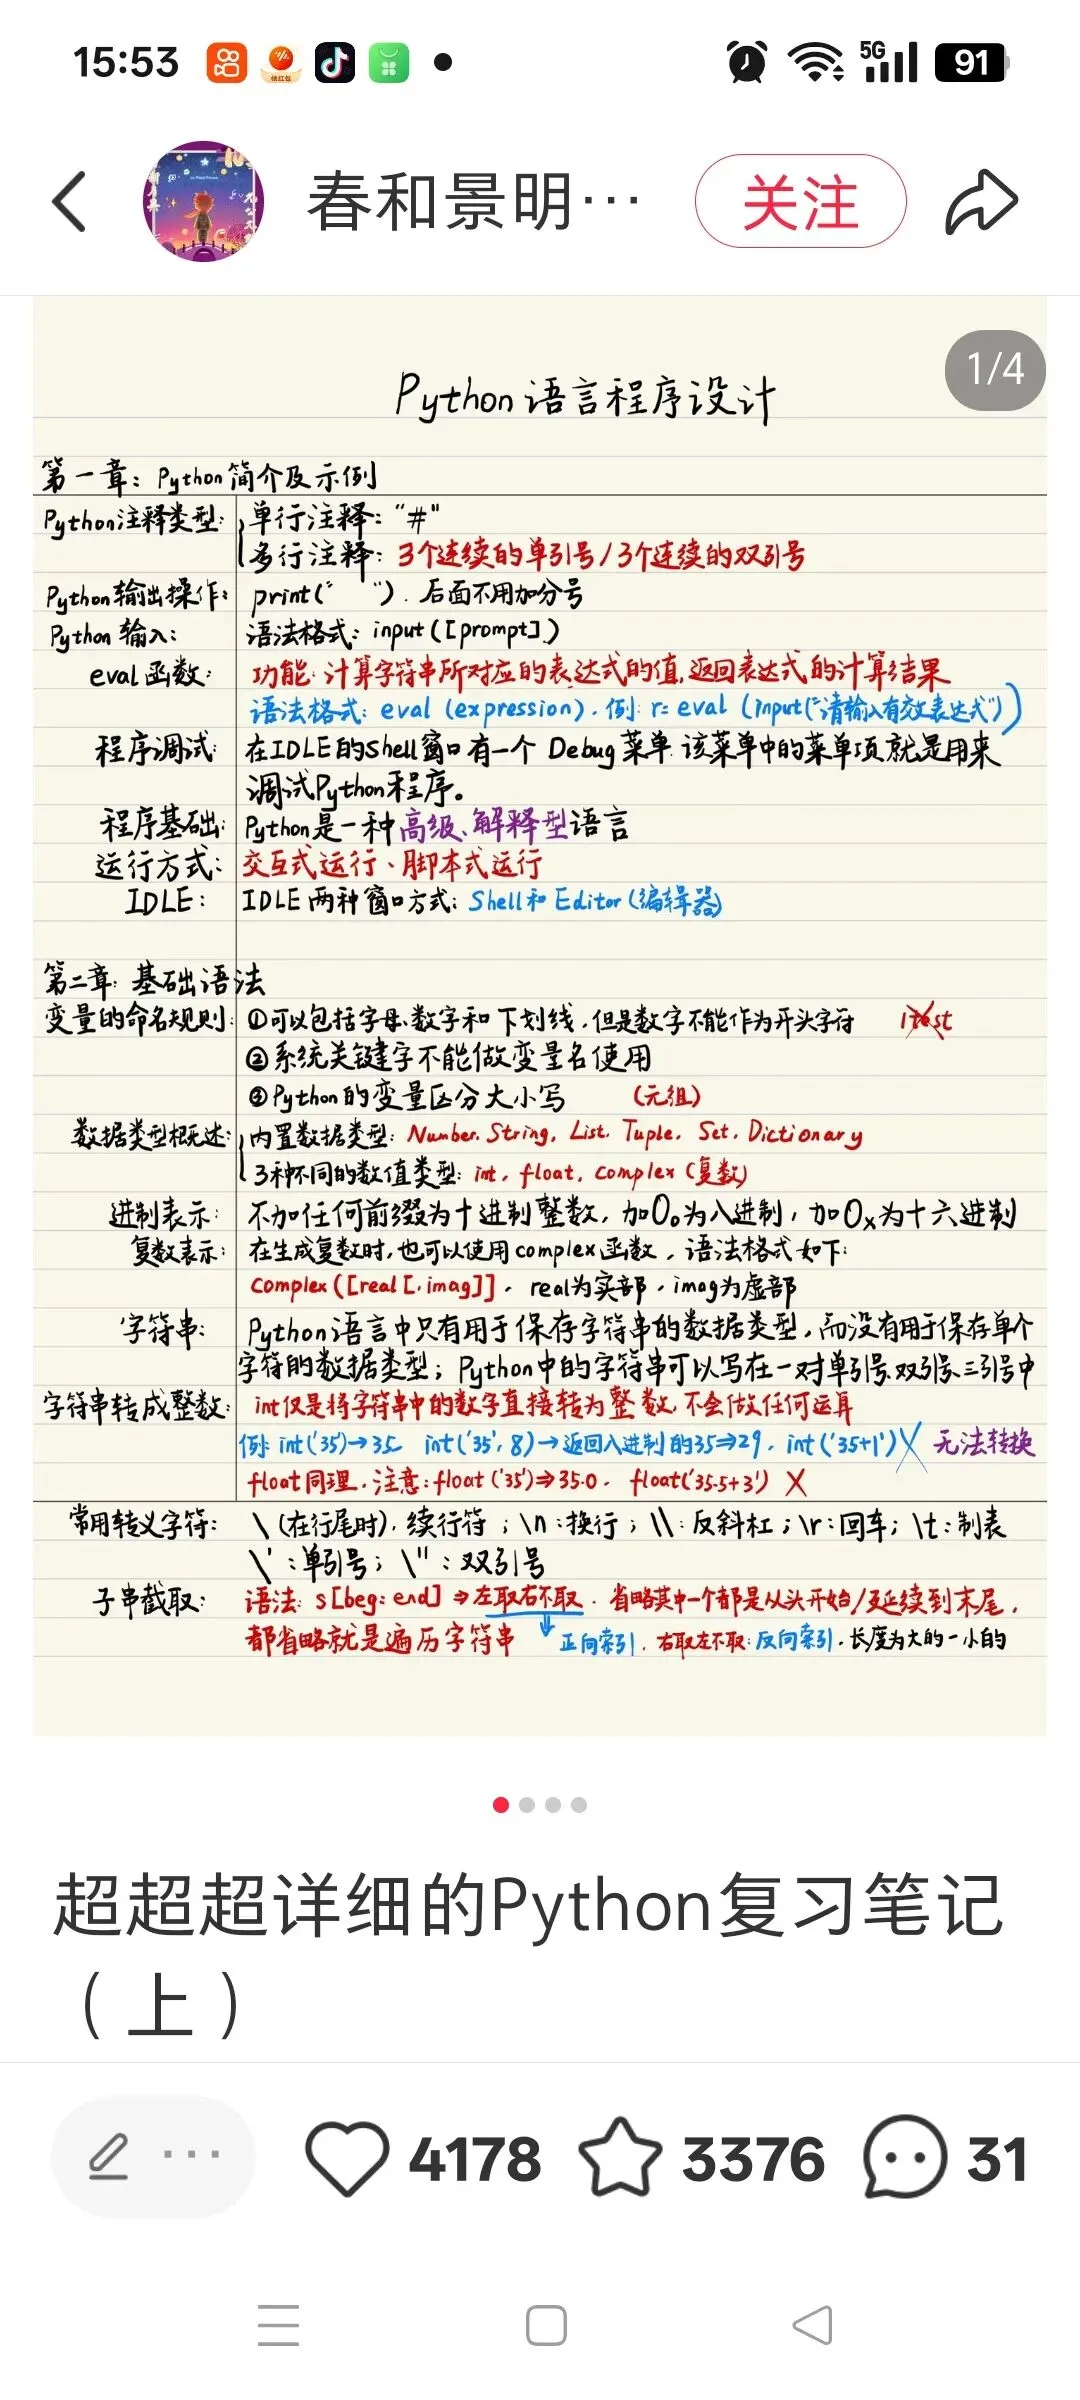 15:53
5G
91
春和景明…
关注
1/4
Python 语言程序设计
第一章：Python简介及示例
Python注释类型：单行注释："#"
多行注释：3个连续的单引号/3个连续的双引号
Python输出操作：print(" ")．后面不用加分号
Python 输入：语法格式：input([prompt])
eval函数：功能：计算字符串所对应的表达式的值，返回表达式的计算结果
语法格式：eval (expression)．例：r= eval (input("请输入有效表达式"))
程序调试：在IDLE的shell窗口有一个 Debug菜单 该菜单中的菜单项就是用来
调试Python程序。
程序基础：Python是一种高级、解释型语言
运行方式：交互式运行、脚本式运行
IDLE：IDLE 两种窗口方式：Shell和 Editor(编辑器)
第二章：基础语法
变量的命名规则：①可以包括字母、数字和下划线，但是数字不能作为开头字符 1test
②系统关键字不能做变量名使用
③Python的变量区分大小写 (元组)
数据类型概述：内置数据类型：Number. String. List. Tuple. Set. Dictionary
3种不同的数值类型：int. float. complex (复数)
进制表示：不加任何前缀为十进制整数，加0o为八进制，加0x为十六进制
复数表示：在生成复数时，也可以使用complex函数，语法格式如下：
complex([real[, imag]]．real为实部，imag为虚部
字符串：Python语言中只有用于保存字符串的数据类型，而没有用于保存单个
字符的数据类型；Python中的字符串可以写在一对单引号、双引号、三引号中
字符串转成整数：int仅是将字符串中的数字直接转为整数，不会做任何运算
例：int('35')→35 int('35', 8)→返回八进制的35⇒29，int('35+1')╳ 无法转换
float同理．注意：float ('35')⇒35.0． float('35.5+3') ╳
常用转义字符：\(在行尾时)，续行符；\n：换行；\\：反斜杠；\r：回车；\t：制表
\'：单引号；\"：双引号
子串截取：语法：s[beg: end] ⇒左取右不取．省略其中一个都是从头开始/延续到末尾，
都省略就是遍历字符串 正向索引．右取左不取：反向索引．长度为大的一小的
超超超详细的Python复习笔记
（上）
4178
3376
31